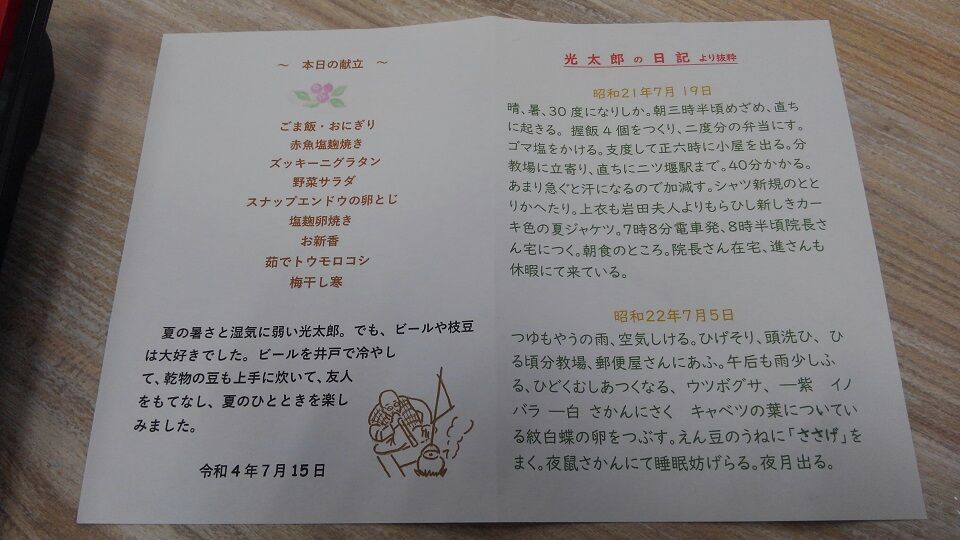 ～ 本日の献立 ～
ごま飯・おにぎり
赤魚塩麹焼き
ズッキーニグラタン
野菜サラダ
スナップエンドウの卵とじ
塩麹卵焼き
お新香
茹でトウモロコシ
梅干し寒
夏の暑さと湿気に弱い光太郎。でも、ビールや枝豆
は大好きでした。ビールを井戸で冷やし
て、乾物の豆も上手に炊いて、友人
をもてなし、夏のひとときを楽し
みました。
令和4年7月15日
光太郎の日記より抜粋
昭和21年7月19日
晴、暑、30度になりしか。朝三時半頃めざめ、直ち
に起きる。握飯4個をつくり、二度分の弁当にす。
ゴマ塩をかける。支度して正六時に小屋を出る。分
教場に立寄り、直ちに二ツ堰駅まで。40分かかる。
あまり急ぐと汗になるので加減す。シャツ新規のとと
りかへたり。上衣も岩田夫人よりもらひし新しきカー
キ色の夏ジャケツ。7時8分電車発、8時半頃院長さ
ん宅につく。朝食のところ。院長さん在宅、進さんも
休暇にて来ている。
昭和22年7月5日
つゆもやうの雨、空気しける。ひげそり、頭洗ひ、ひ
る頃分教場、郵便屋さんにあふ。午后も雨少しふ
る、ひどくむしあつくなる、ウツボグサ、―紫 イノ
バラ ―白 さかんにさく キャベツの葉についてい
る紋白蝶の卵をつぶす。えん豆のうねに「ささげ」を
まく。夜鼠さかんにて睡眠妨げらる。夜月出る。